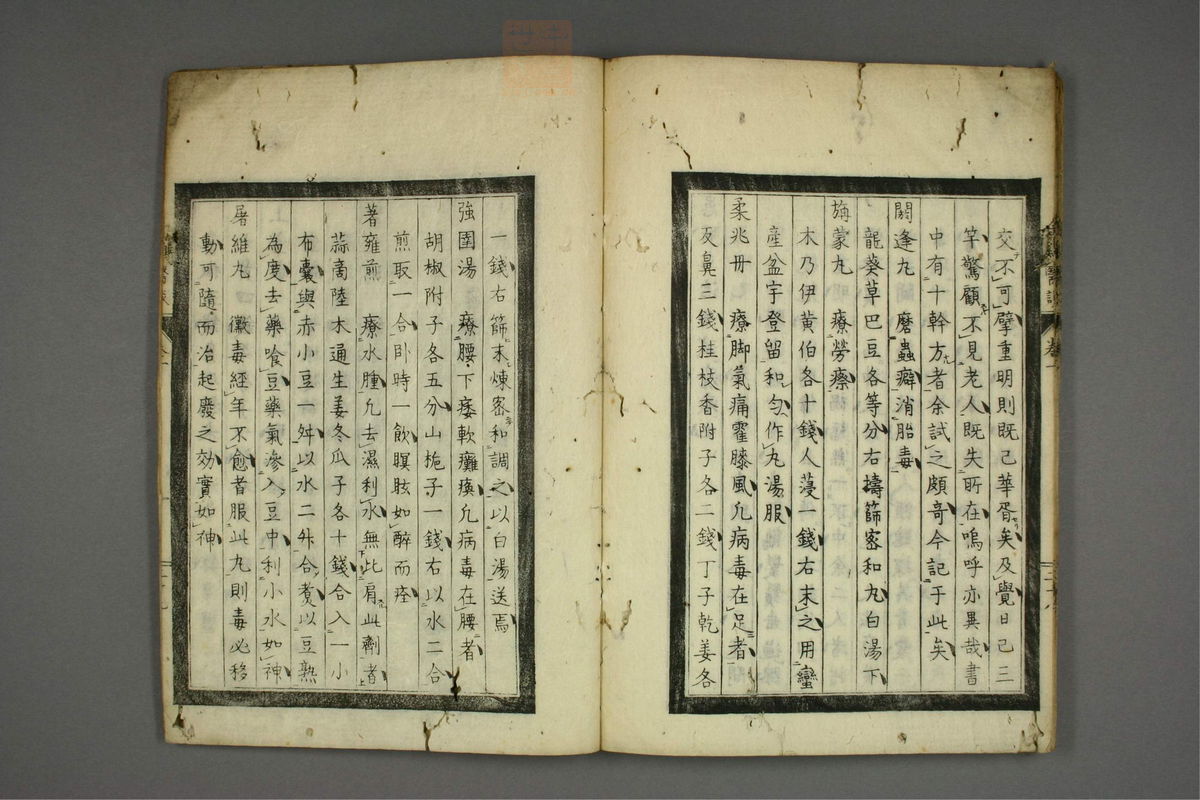 交不可擘重明則既已華胥矣及覺日已三
竿驚顧不見老人既失所在嗚呼亦異哉書
中有十幹方者余試之頗奇今記于此矣
閼逢丸　磨蟲癖消胎毒
龍葵草巴豆各等分右擣篩密和丸白湯下
旃蒙丸　療勞瘵
木乃伊黄伯各十錢人蓡一錢右末之用蠻
産盆宇登留和勻作丸湯服
柔兆丹　療脚氣痛霍膝風凢病毒在足者
反鼻三錢桂枝香附子各二錢丁子乾姜各
一錢右篩末煉密和調之以白湯送焉
強圉湯　療腰下痿軟癱瘓凢病毒在腰者
胡椒附子各五分山梔子一錢右以水二合
煎取一合卧時一飲瞑眩如醉而痊
著雍煎　療水腫凢去濕利水無此肩此劑者
蒜商陸木通生姜冬瓜子各十錢合入一小
布囊與赤小豆一舛以水二舛合煮以豆熟
為度去藥喰豆藥氣滲入豆中利小水如神
屠維丸　黴毒經年不愈者服此丸則毒必移
動可隨而治起廢之効實如神